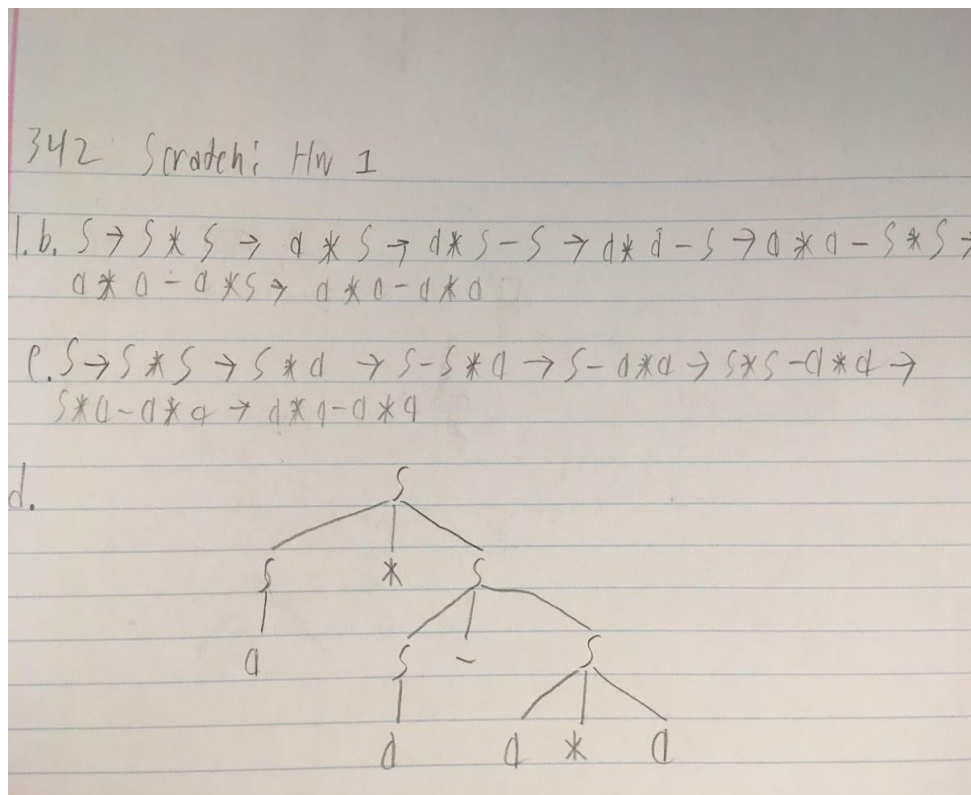 342 Scratch: Hw 1
1.b. S → S * S → a * S → a * S - S → a * a - S → a * a - S * S →
a * a - a * S → a * a - a * a
c. S → S * S → S * a → S - S * a → S - a * a → S * S - a * a →
S * a - a * a → a * a - a * a
d.
S
S * S
a S - S
a a * a